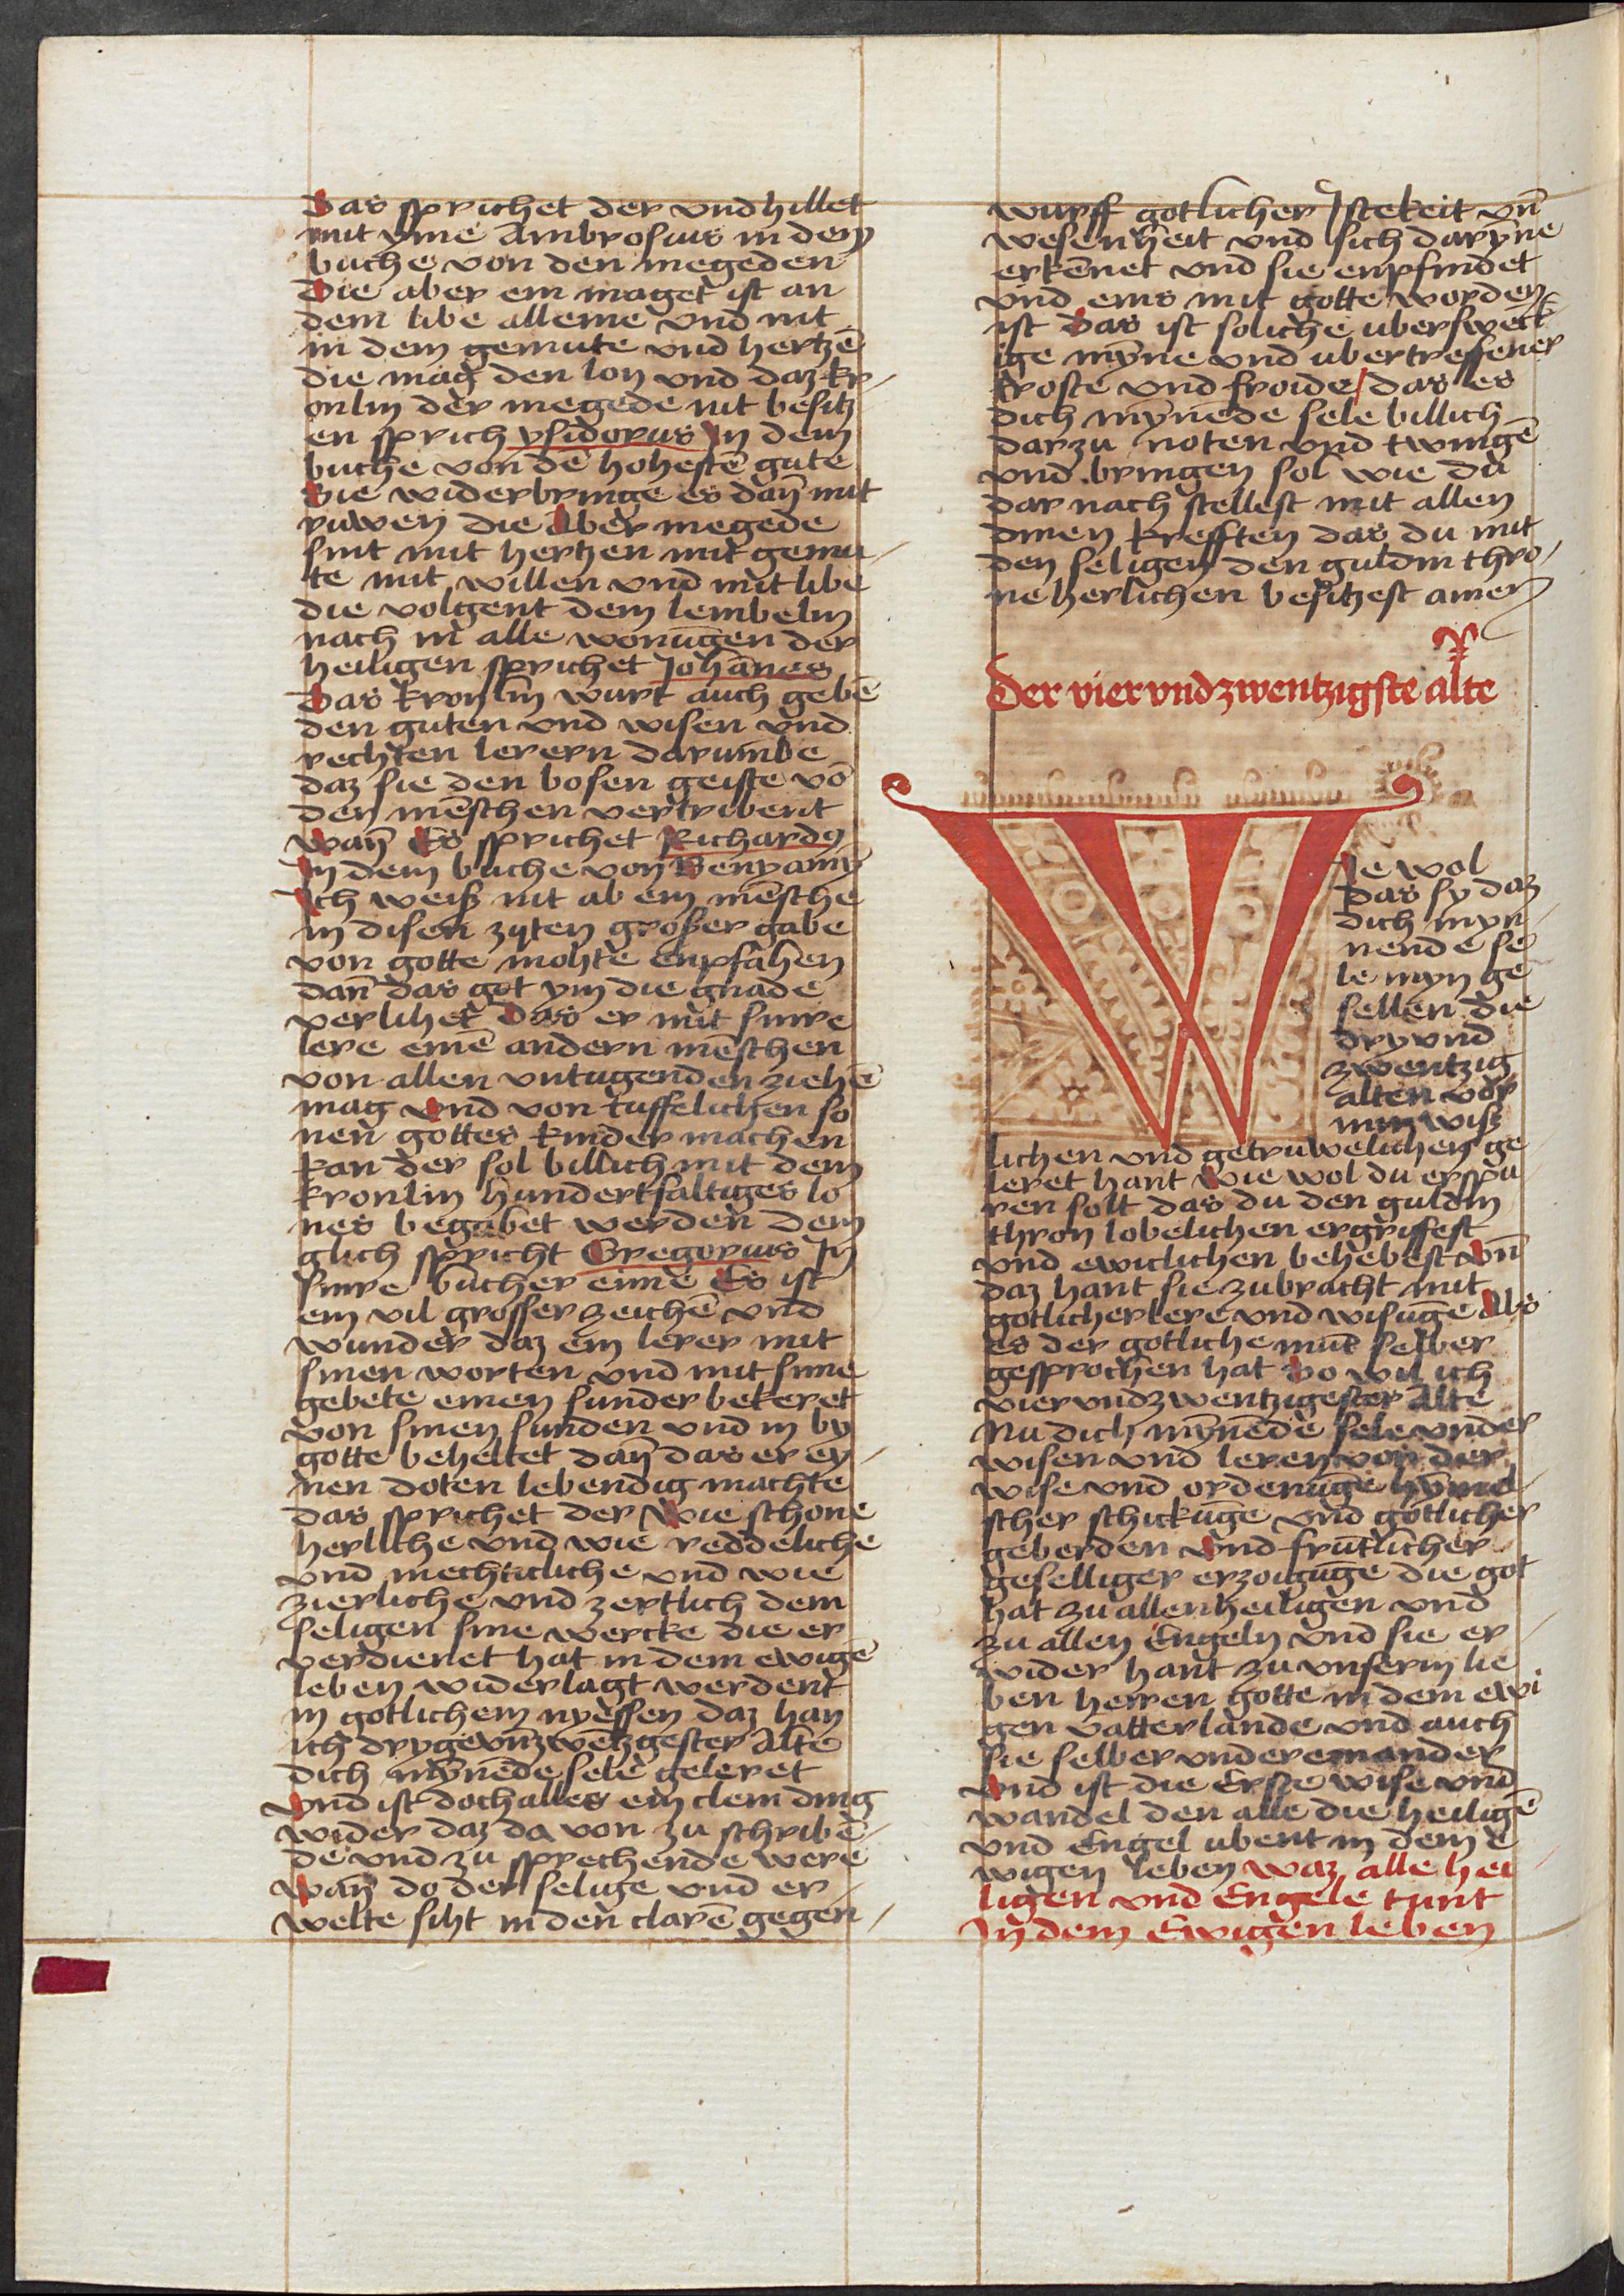 Das sprichet der vnd hillet
mit yme Ambrosius in dem
buche von den megeden
Die aber ein maget ist an
dem libe alleine vnd nit
in dem gemute vnd hertzē
die mag den lon vnd daz kr-
onlin der megede nit besitz
en sprich ysidorus In dem
buche von dē hohestē gute
Sie widerbringe es dan̄ mit
ruwen die Aber megede
sint mit hertzen mit gemu-
te mit willen vnd mit libe
die volgent dem lembelin
nach in alle wonūgen der
heiligen sprichet Johānes
Das kronlin wurt auch gebē
den guten vnd wisen vnd
rechten lerern darumbe
daz sie den bosen geiste vō
den mēschen vertribent
Wan̄ Es sprichet Richardꝰ
In dem buche von Benyamin
Ich weiß nit ab ein mēsche
in disen zyten großer gabe
von gotte mohte enpfahen
dan̄ das got ym die gnade
verlihet Das er mit sinre
lere einē andern mēschen
von allen vntugenden ziehē
mag Vnd von tuffelichen so
nen gottes kinder machen
kan der sol billich mit dem
kronlin hundertfaltiges lo
nes begabet werden dem
glich spricht Gregorius In
sinre bucher eime Es ist
ein vil grosser zeichē vnd
wunder daz ein lerer mit
sinen worten vnd mit sime
gebete einen sunder bekeret
von sinen sunden vnd in by
gotte beheltet dan̄ das er ey-
nen doten lebendig machte
das sprichet der Wie schone
herliche vnd wie reddeliche
vnd mechticliche vnd wie
zierliche vnd zertlich dem
seligen sine wercke die er
verdienet hat in dem ewigē
leben widerlagt werdent
in gotlichem nyessen daz han
ich drygevn̄zwēzgester Alte
dich mȳnēde sele geleret
Vnd ist doch alles ein clein ding
wider daz da von zu schribē-
de vnd zu sprechende were
Wan̄ do der selige vnd er-
welte siht in den clarē gegen-
wurff gotlicher Istekeit vn̄
wesenheit vnd sich daryne
erkēnet vnd sie enpfindet
vnd eins mit gotte worden
ist Das ist soliche uberswenck-
ige mȳne vnd ubertreffener
troste vnd froide/ das es
dich mȳnēde sele billich
darzu noten vnd twingē
vnd bringen sol wie du
dar nach stellest mit allen
dinen krefften das du mit
den seligen den guldin thro-
ne herlichen besitzest amen
Der vier vnd zwentzigste alte
Wie wol
das sy daz
dich myn-
nende se
le myn ge
sellen die
dry vnd
zwentzig
alten vor
mir wiß
lichen vnd getruwelichen ge
leret hant Wie wol du erspu-
ren solt das du den guldin
thron lobelichen ergriffest
vnd ewiclichen behebest Vn̄
daz hant sie zubracht mit
gotlicher lere vnd wisūge Als
es der gotliche munt selber
gesprochen hat So wil ich
vier vnd zwentzigester Alte
Nu dich mȳnēde sele vnder
wisen vnd leren von der
wise vnd ordenūge hymel-
scher schickūge vnd gotlicher
geberden Vnd fruntlicher
geselliger erzoigūge die got
hat zu allen heiligen vnd
zu allen Engeln vnd sie er
wider hant zu vnserm lie
ben herren gotte in dem ewi
gen vatterlande vnd auch
sie selber vnder einander
Vnd ist die Erste wise vnd
wandel den alle die heiligē
vnd Engel ubent in dem e
wigen leben waz alle hei-
ligen vnd Engele tunt
In dem Ewigen leben